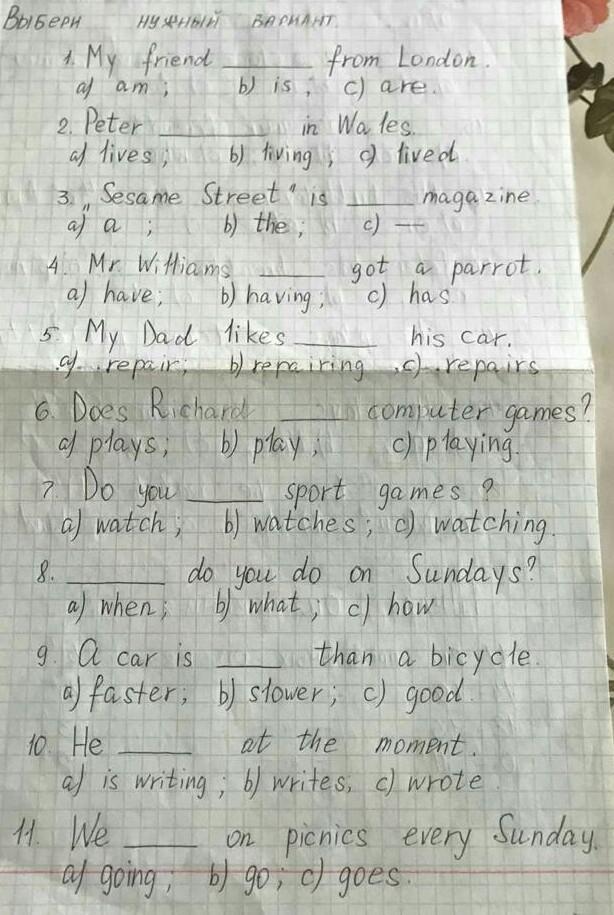 Выбери нужный вариант.
1. My friend ______ from London.
a) am; b) is; c) are.
2. Peter ______ in Wales.
a) lives; b) living; c) lived
3. „Sesame Street" is ______ magazine.
a) a; b) the; c) —
4. Mr. Williams ______ got a parrot.
a) have; b) having; c) has
5. My Dad likes ______ his car.
a) repair; b) repairing c) repairs
6. Does Richard ______ computer games?
a) plays; b) play; c) playing.
7. Do you ______ sport games?
a) watch; b) watches; c) watching.
8. ______ do you do on Sundays?
a) when; b) what; c) how
9. A car is ______ than a bicycle.
a) faster; b) slower; c) good.
10. He ______ at the moment.
a) is writing; b) writes, c) wrote
11. We ______ on picnics every Sunday.
a) going; b) go; c) goes.